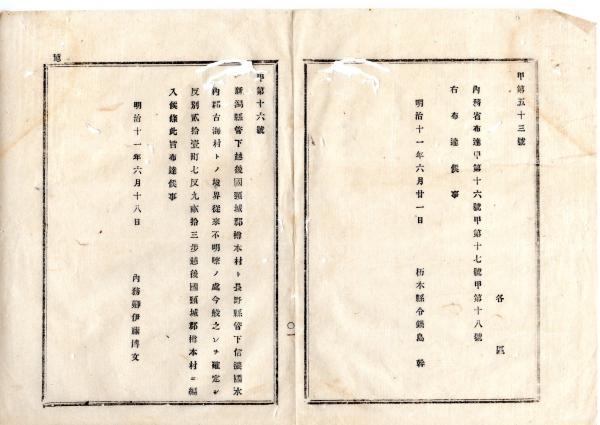 甲第五十三號
各區
內務省布達甲第十六號甲第十七號甲第十八號
右布達候事
明治十一年六月廿一日 栃木縣令鍋島幹
甲第十六號
新潟縣管下越後國頸城郡樽本村ト長野縣管下信濃國水
內郡古海村トノ境界從來不明瞭ノ處今般之レヲ確定シ
反別貳拾壹町七反九畝拾三步越後國頸城郡樽本村ニ編
入候條此旨布達候事
明治十一年六月十八日 內務卿伊藤博文